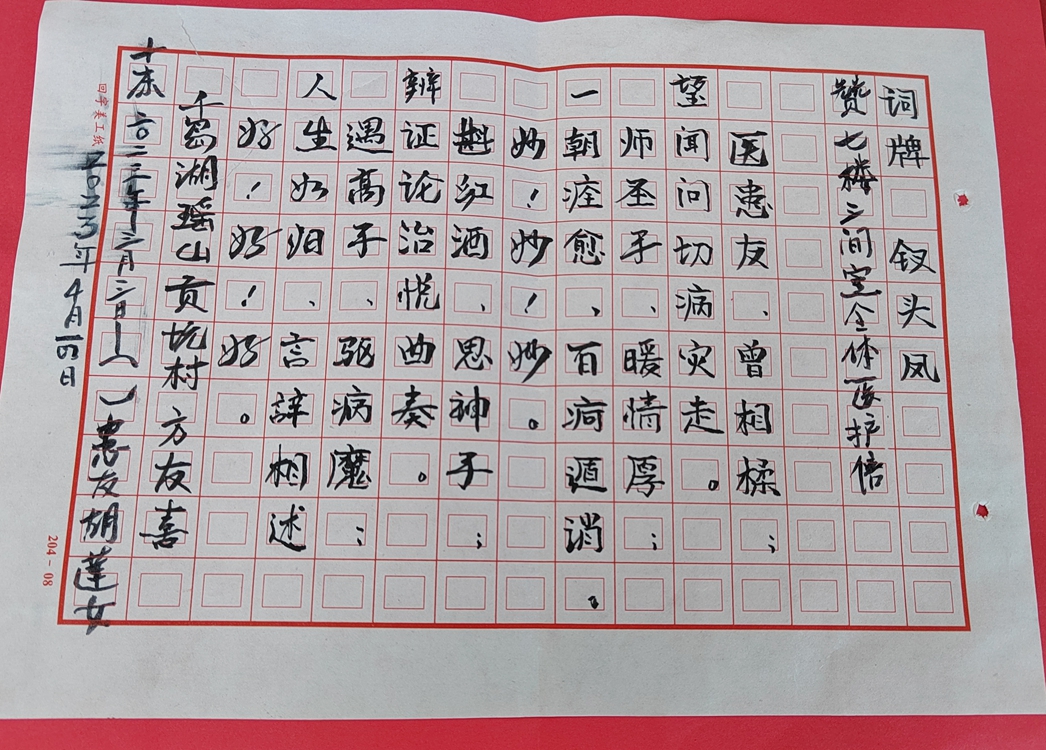 词牌 钗头凤
赞七楼二间室全体医护倍
医患友、曾相楺；
望闻问切病灾走。
师圣手、暖情厚；
一朝痊愈、百疴遁消。
妙！妙！妙。
斟红酒、思神子；
辨证论治悦曲奏。
遇高手、驱病魔；
人生如归、言辞相述
好！好！好。
千岛湖瑶山贡坑村方友喜
二〇二三年4月14日
患友胡莲女
回宇美工纸
204-08